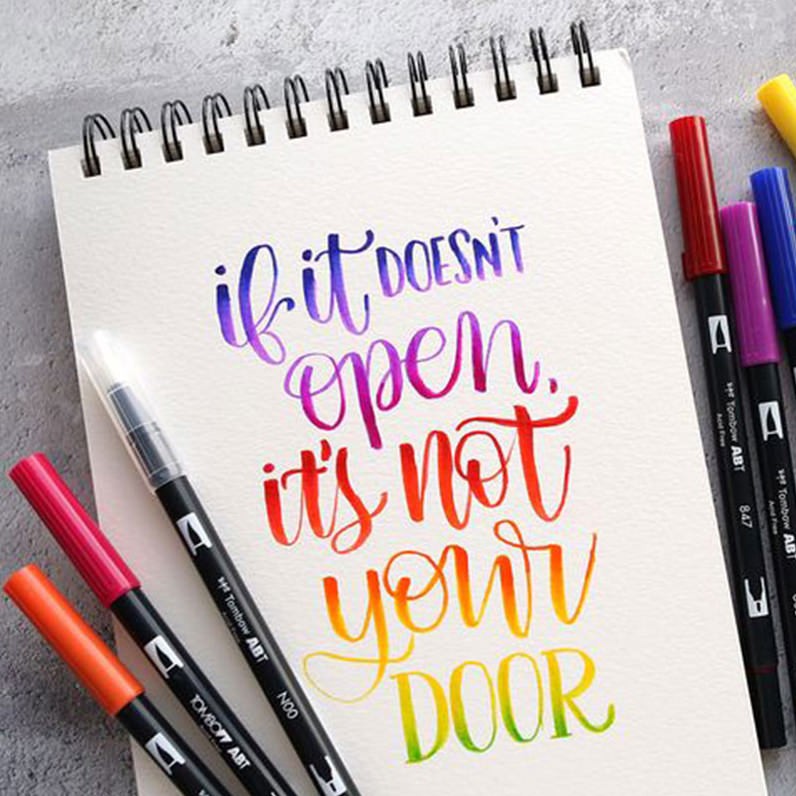 if it DOESN'T
open,
it's not
your
DOOR
Tombow ABT
N00
TOMBOW ABT
Tombow ABT
Acid Free
847
Tombow ABT
Acid Free